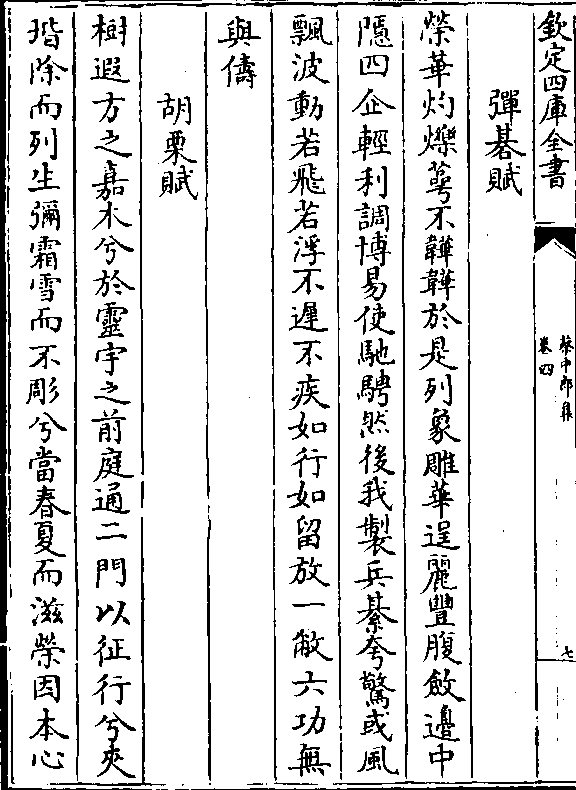 欽定四庫全書
蔡中郎集
卷四
七
彈碁賦
榮華灼爍萼不韡韡於是列象雕華逞麗豐腹斂邊中
隱四企輕利調博易使馳騁然後我製兵棊夸驚或風
飄波動若飛若浮不遲不疾如行如留放一敝六功無
與儔
胡栗賦
樹遐方之嘉木兮於靈宇之前庭通二門以征行兮夾
階除而列生彌霜雪而不彫兮當春夏而滋榮因本心